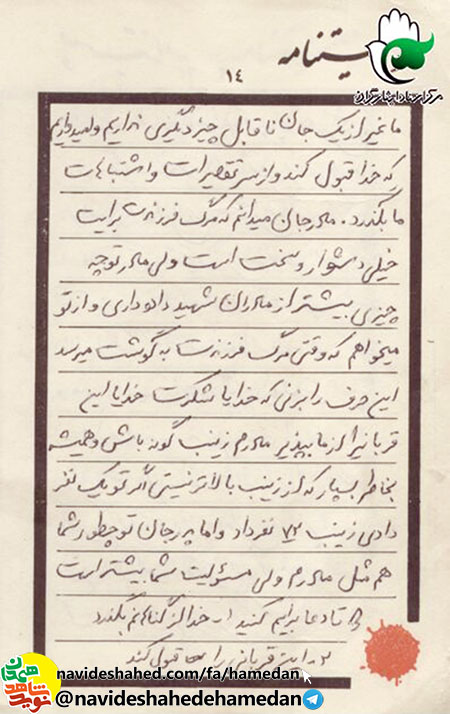 وصیتنامه
۱٤
مرکز اسناد ایثارگران
ما غیر از یک جان ناقابل چیز دیگری نداریم و امیدواریم
که خدا قبول کند و از سر تقصیرات و اشتباهات
ما بگذرد. مادر جان میدانم که مرگ فرزندت برایت
خیلی دشوار و سخت است ولی مادر تو چه
چیزی بیشتر از مادران شهید داده داری و از تو
میخواهم که وقتی مرگ فرزندت به گوشت میرسد
این حرف را بزنی که خدایا شکرت خدایا این
قربانی را از ما بپذیر مادرم زینب گونه باشی و همیشه
بخاطر بسپار که از زینب بالاتر نیستی اگر تو یک نفر
دادی زینب ۷۲ نفر داد و اما پدر جان تو چطور شما
هم مثل مادرم ولی مسئولیت شما بیشتر است
تا دعا برایم کنید که خدا از گناهانم بگذرد
و این قربانی را قبول کند
نوید شاهد همدان
navideshahed.com/fa/hamedan
@navideshahedehamedan